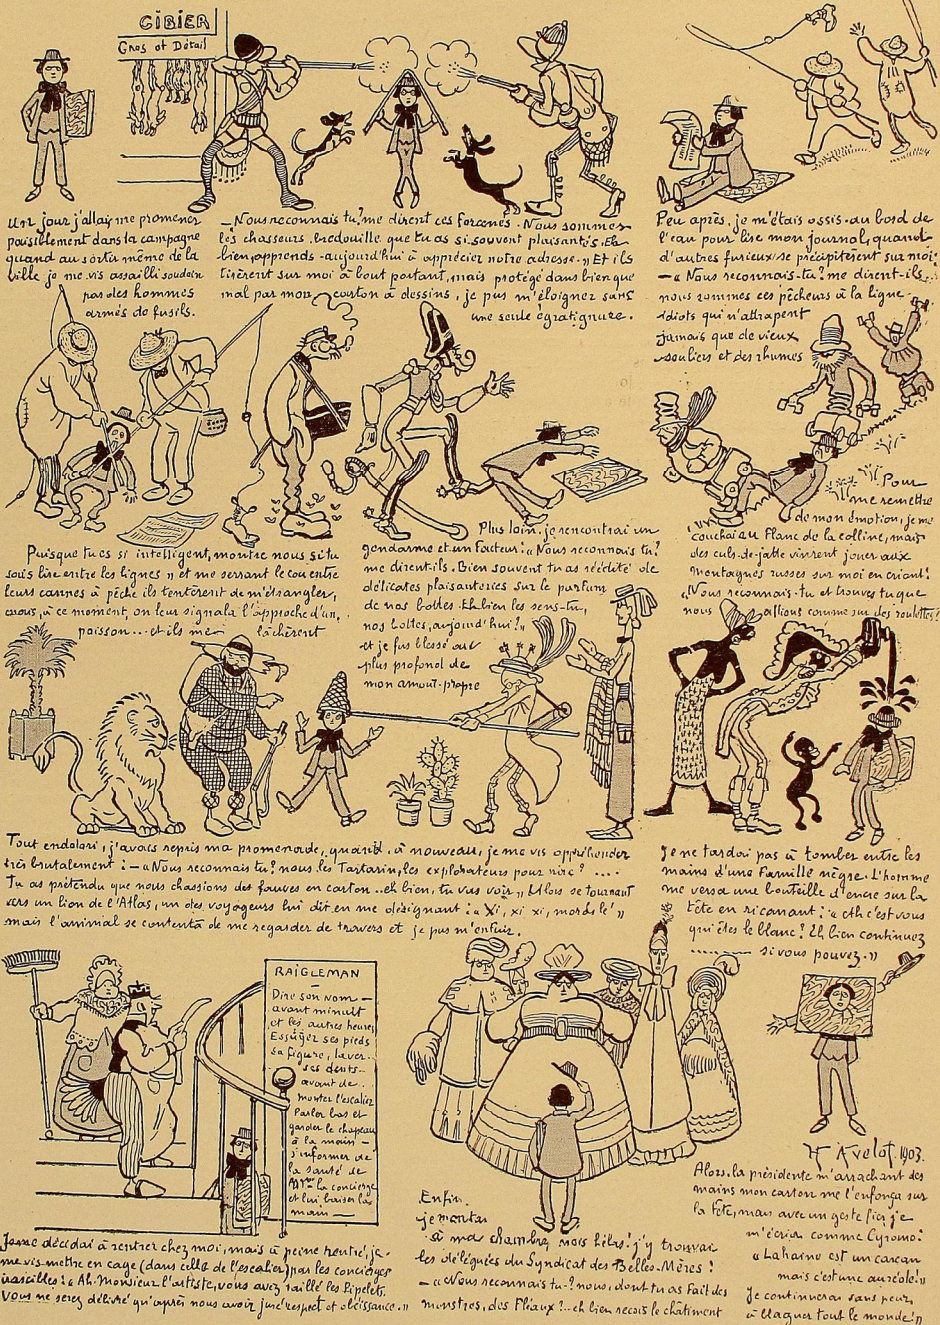 GIBIER
Gros et Détail
Un jour j'allais me promener
paisiblement dans la campagne
quand au sortir même de la
ville je me vis assailli soudain
par des hommes
armés de fusils.
_Nous reconnais tu? me dirent ces forcenés. Nous sommes
les chasseurs bredouille que tu as si souvent plaisantés. Eh
bien, apprends aujourd'hui à apprécier notre adresse." Et ils
tirèrent sur moi à bout portant, mais protégé dans bien que
mal par mon carton à dessins, je pus m'éloigner sans
une seule égratignure.
Peu après, je m'étais assis au bord de
l'eau pour lire mon journal, quand
d'autres furieux se précipitèrent sur moi:
_"Nous reconnais-tu? me dirent-ils,
nous sommes ces pêcheurs à la ligne
idiots qui n'attrapent
jamais que de vieux
souliers et des rhumes
Puisque tu es si intelligent, montre nous si tu
sais lire entre les lignes" et me serrant le cou entre
leurs cannes à pêche ils tentèrent de m'étrangler,
mais, à ce moment, on leur signala l'approche d'un
poisson... et ils me lâchèrent
Plus loin, je rencontrai un
gendarme et un facteur: "Nous reconnais tu?
me dirent-ils. Bien souvent tu as réédité de
délicates plaisanteries sur le parfum
de nos bottes. Eh bien les sens-tu,
nos bottes, aujourd'hui?"
et je fus blessé au
plus profond de
mon amour-propre
Pour
me remettre
de mon émotion, je me
couchai au flanc de la colline, mais
des culs-de-jatte vinrent jouer aux
montagnes russes sur moi en criant:
"Nous reconnais-tu et trouves tu que
nous allions comme sur des roulettes?
Tout endolori, j'avais repris ma promenade, quand, à nouveau, je me vis appréhender
très brutalement: _"Nous reconnais tu? nous les Tartarin, les explorateurs pour rire? ....
Tu as prétendu que nous chassions des fauves en carton..eh bien, tu vas voir" Alors se tournant
vers un lion de l'Atlas, un des voyageurs lui dit en me désignant: "Xi, xi xi, mords le"
mais l'animal se contenta de me regarder de travers et je pus m'enfuir.
Je ne tardai pas à tomber entre les
mains d'une Famille nègre. L'homme
me versa une bouteille d'encre sur la
tête en ricanant: "Ah c'est vous
qui êtes le blanc? Eh bien continuez
si vous pouvez."
RAIGLEMAN
Dire son nom
avant minuit
et les autres heures
Essuyer ses pieds
sa figure, laver
ses dents
avant de
monter l'escalier
Parler bas et
garder le chapeau
à la main
s'informer de
la santé de
Mme la concierge
et lui baiser la
main
Je me décidai à rentrer chez moi, mais à peine rentré, je
me vis mettre en cage (dans celle de l'escalier) par les concierges
irascibles: "Ah. Monsieur l'artiste, vous avez raillé les Pipelets.
Vous ne serez délivré qu'après nous avoir juré respect et obéissance."
Enfin,
je montai
à ma chambre, mais hélas! j'y trouvai
les déléguées du Syndicat des Belles-Mères!
_"Nous reconnais tu? nous, dont tu as fait des
monstres, des Fléaux?..eh bien reçois le châtiment
H. Avelot. 1903.
Alors la présidente m'arrachant des
mains mon carton me l'enfonça sur
la tête, mais avec un geste fier je
m'écriai comme Cyrano:
"La haine est un carcan
mais c'est une auréole!"
Je continuerai sans peur,
à blaguer tout le monde!"